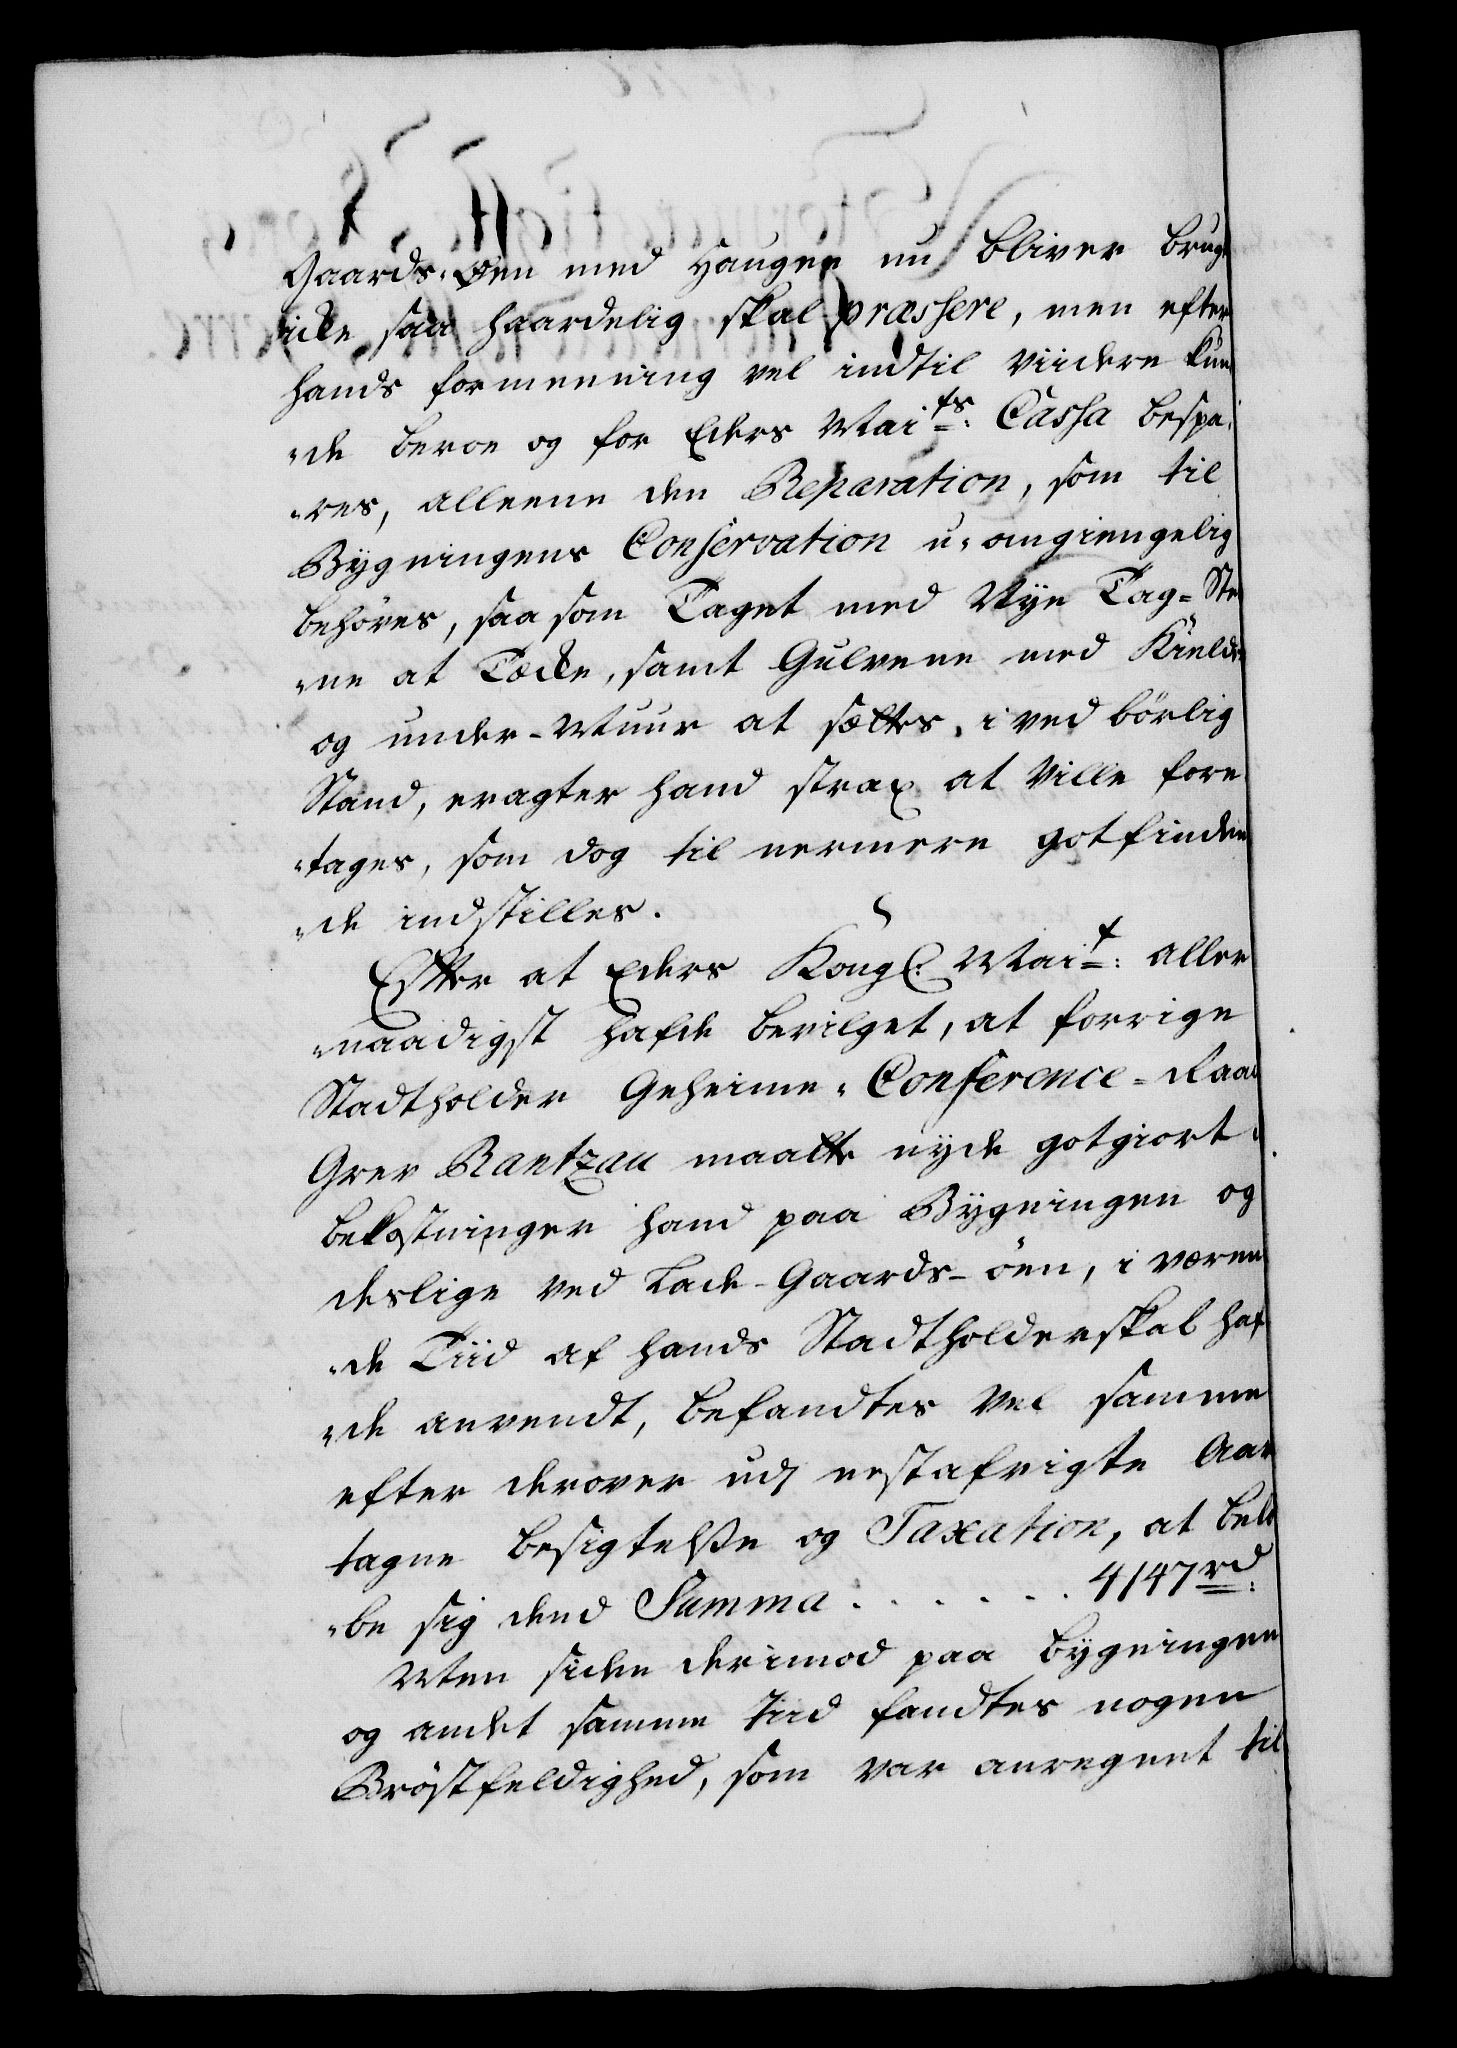 Gaards-Øen med Haugen nu bliver brug
icke saa haardelig skal præssere, men efter
hands formeening vel indtil viidere kun
"de beroe og for Eders Maits: Cassa bespa-
"res, alleene den Reparation, som til
Bygningens Conservation u-omgiengelig
behöves, saa som Taget med Nye Tag-Stee
"ne at Tæcke, samt Gulvene med Kielder
og under-Muur at sættes, i ved börlig
Stand, eragter hand strax at ville fore
"tages, som dog til nermere gotfinden
"de indstilles.
Efter at Eders Kongl: Mait: aller
"naadigst hafde bevilget, at forrige
Stadtholder Geheime-Conference-Raad
Grev Rantzau maatte nyde gotgiort
bekostninger hand paa Bygningen og
deslige ved Lade-Gaards-öen, i væren
"de Tiid af hands Stadtholderskab haf
"de anvendt, befandtes vel samme
efter derover udj nestafvigte Aar
tagne besigtelsse og Taxation, at belö
"be sig dend Summa . . . . . . 4147 rd:
Men siden derimod paa bygningen
og andet samme tiid fandtes nogen
Bröstfeldighed, som var anregnet til